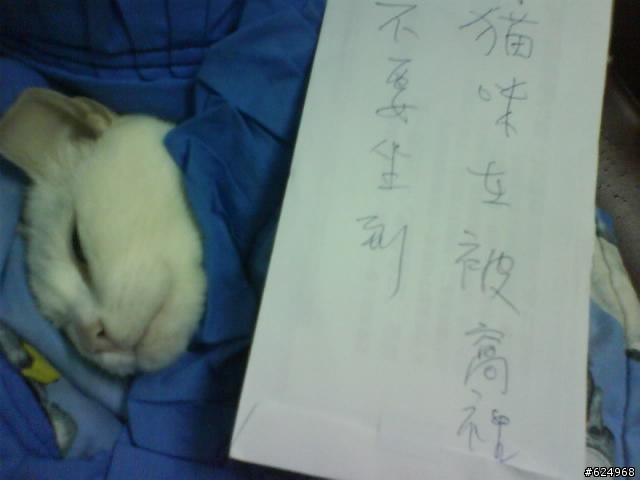 猫咪在被窩裡
不要坐到
#624968